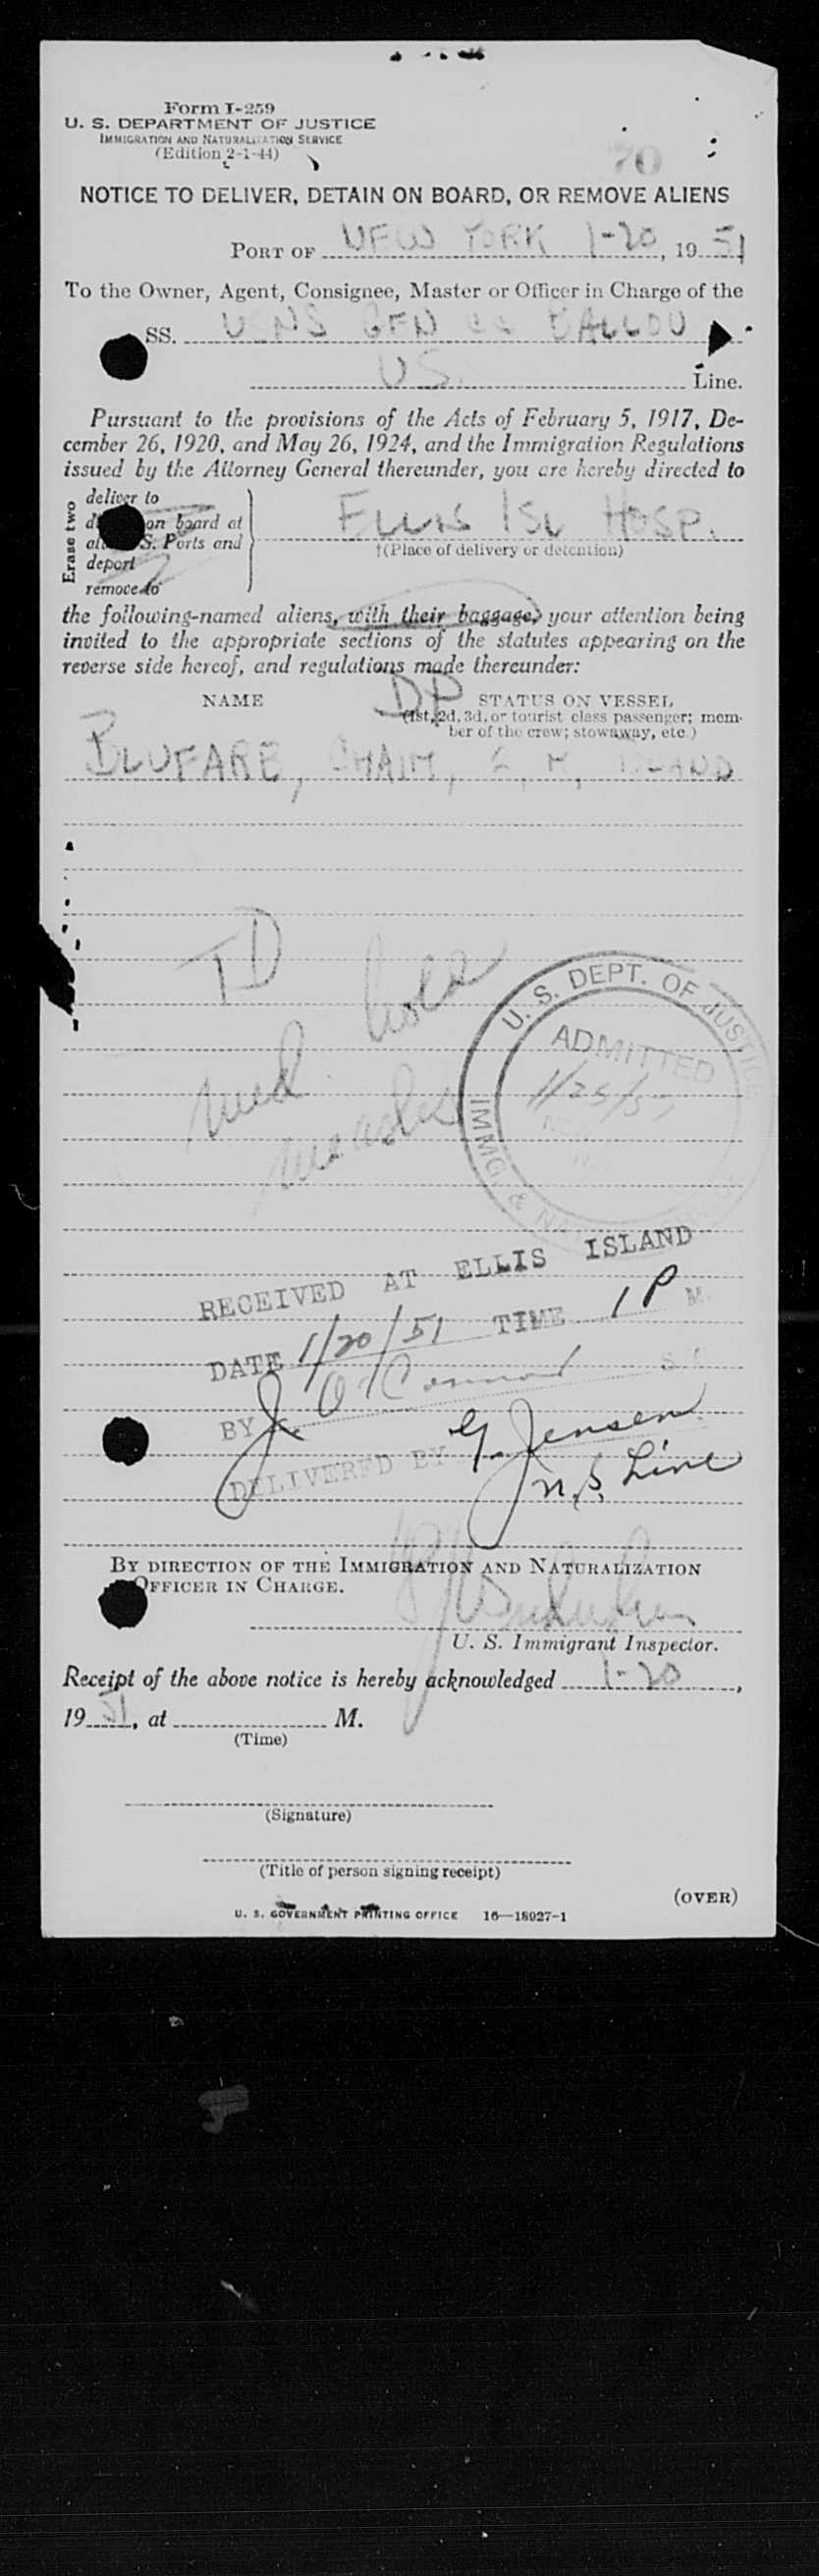 Form I-259
U. S. DEPARTMENT OF JUSTICE
IMMIGRATION AND NATURALIZATION SERVICE
(Edition 2-1-44)
70
NOTICE TO DELIVER, DETAIN ON BOARD, OR REMOVE ALIENS
PORT OF NEW YORK 1-20, 19 51
To the Owner, Agent, Consignee, Master or Officer in Charge of the
SS. USNS GEN CC BALLOU
US. Line.
Pursuant to the provisions of the Acts of February 5, 1917, De-
cember 26, 1920, and May 26, 1924, and the Immigration Regulations
issued by the Attorney General thereunder, you are hereby directed to
Erase two
deliver to
on board at
S. Ports and
deport
remove to
ELLIS ISL HOSP.
†(Place of delivery or detention)
the following-named aliens, with their baggage, your attention being
invited to the appropriate sections of the statutes appearing on the
reverse side hereof, and regulations made thereunder:
NAME
DP STATUS ON VESSEL
(1st, 2d, 3d, or tourist class passenger; mem-
ber of the crew; stowaway, etc.)
BLUFARB, CHAIM, M,
TD
med. hold
measles
U. S. DEPT. OF JUSTICE
ADMITTED
1/25/51
IMMG. &
RECEIVED AT ELLIS ISLAND
DATE 1/20/51 TIME 1 P M.
BY J. O'Connor
DELIVERED BY G. Jensen
Line
BY DIRECTION OF THE IMMIGRATION AND NATURALIZATION
OFFICER IN CHARGE.
U. S. Immigrant Inspector.
Receipt of the above notice is hereby acknowledged 1-20,
19 51, at M.
(Time)
(Signature)
(Title of person signing receipt)
(OVER)
U. S. GOVERNMENT PRINTING OFFICE 16—18027-1